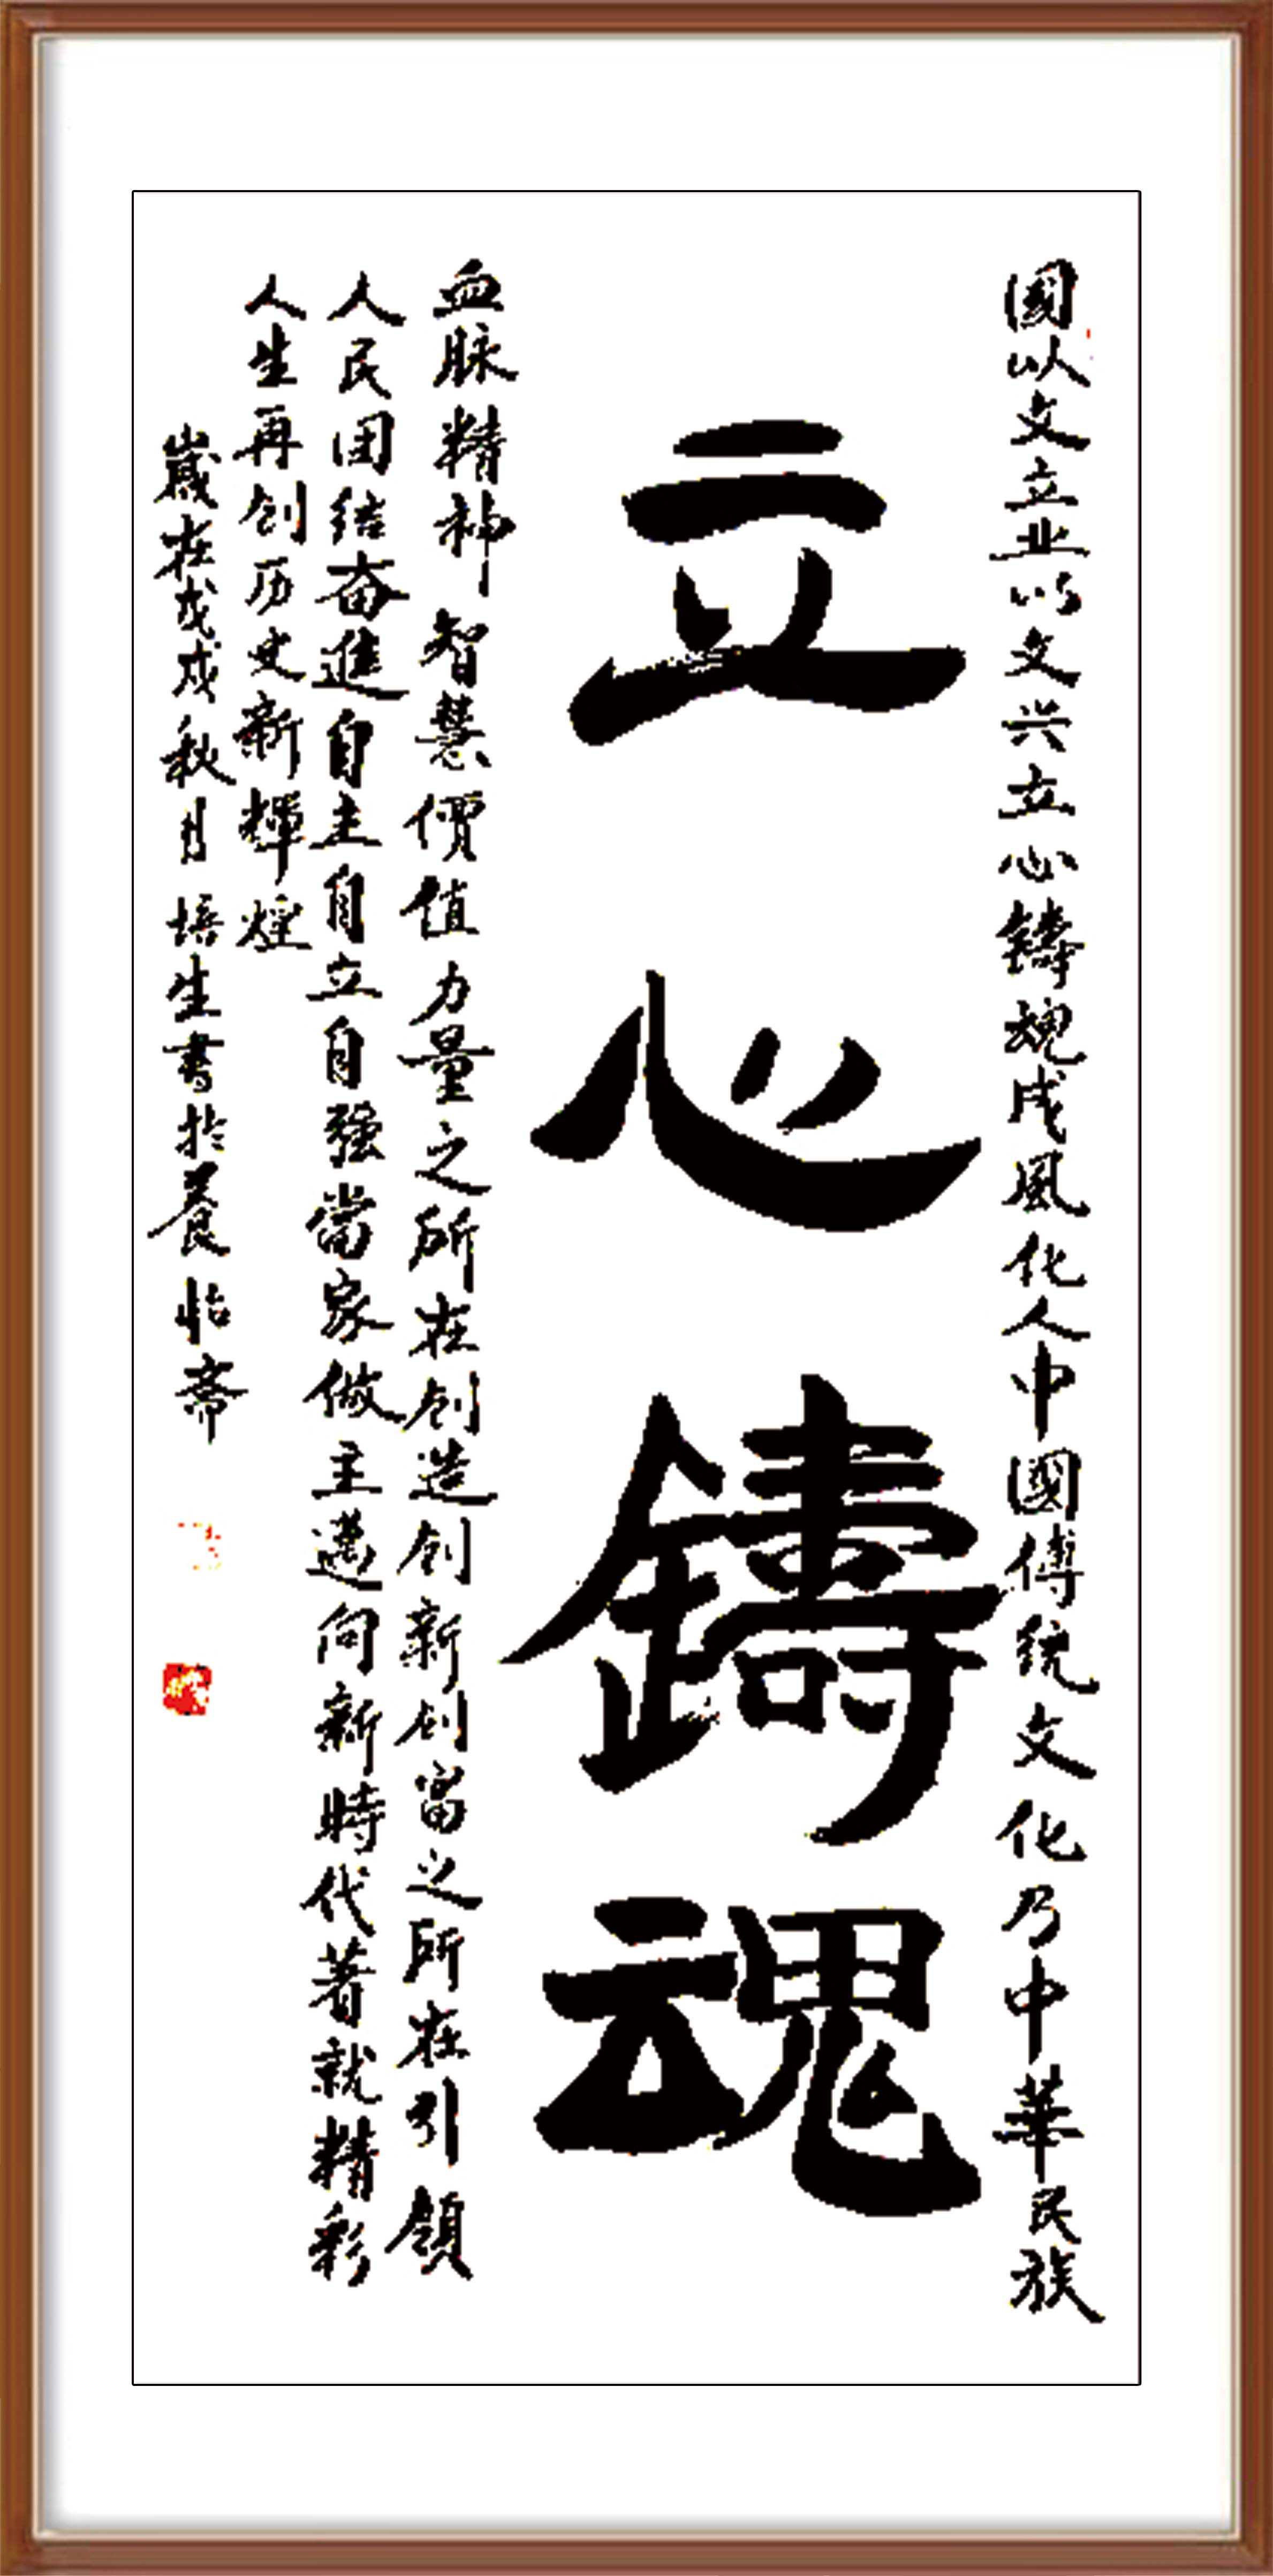 國以文立业以文兴立心鑄魂成風化人中國傅统文化乃中華民族
立心鑄魂
血脉精神智慧價值力量之所在创造创新创富之所在引領
人民团结奋進自主自立自强當家做主邁向新時代著就精彩
人生再创历史新輝煌
歲在戊戌秋月培生書於養怡斋